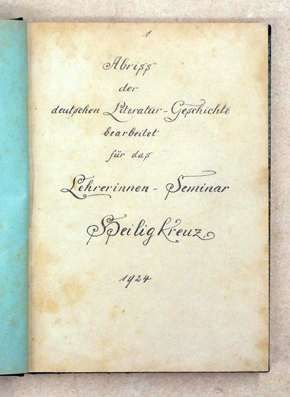 1
Abriss
der
deutschen Literatur-Geschichte
bearbeitet
für das
Lehrerinnen-Seminar
Heiligkreuz.
1924